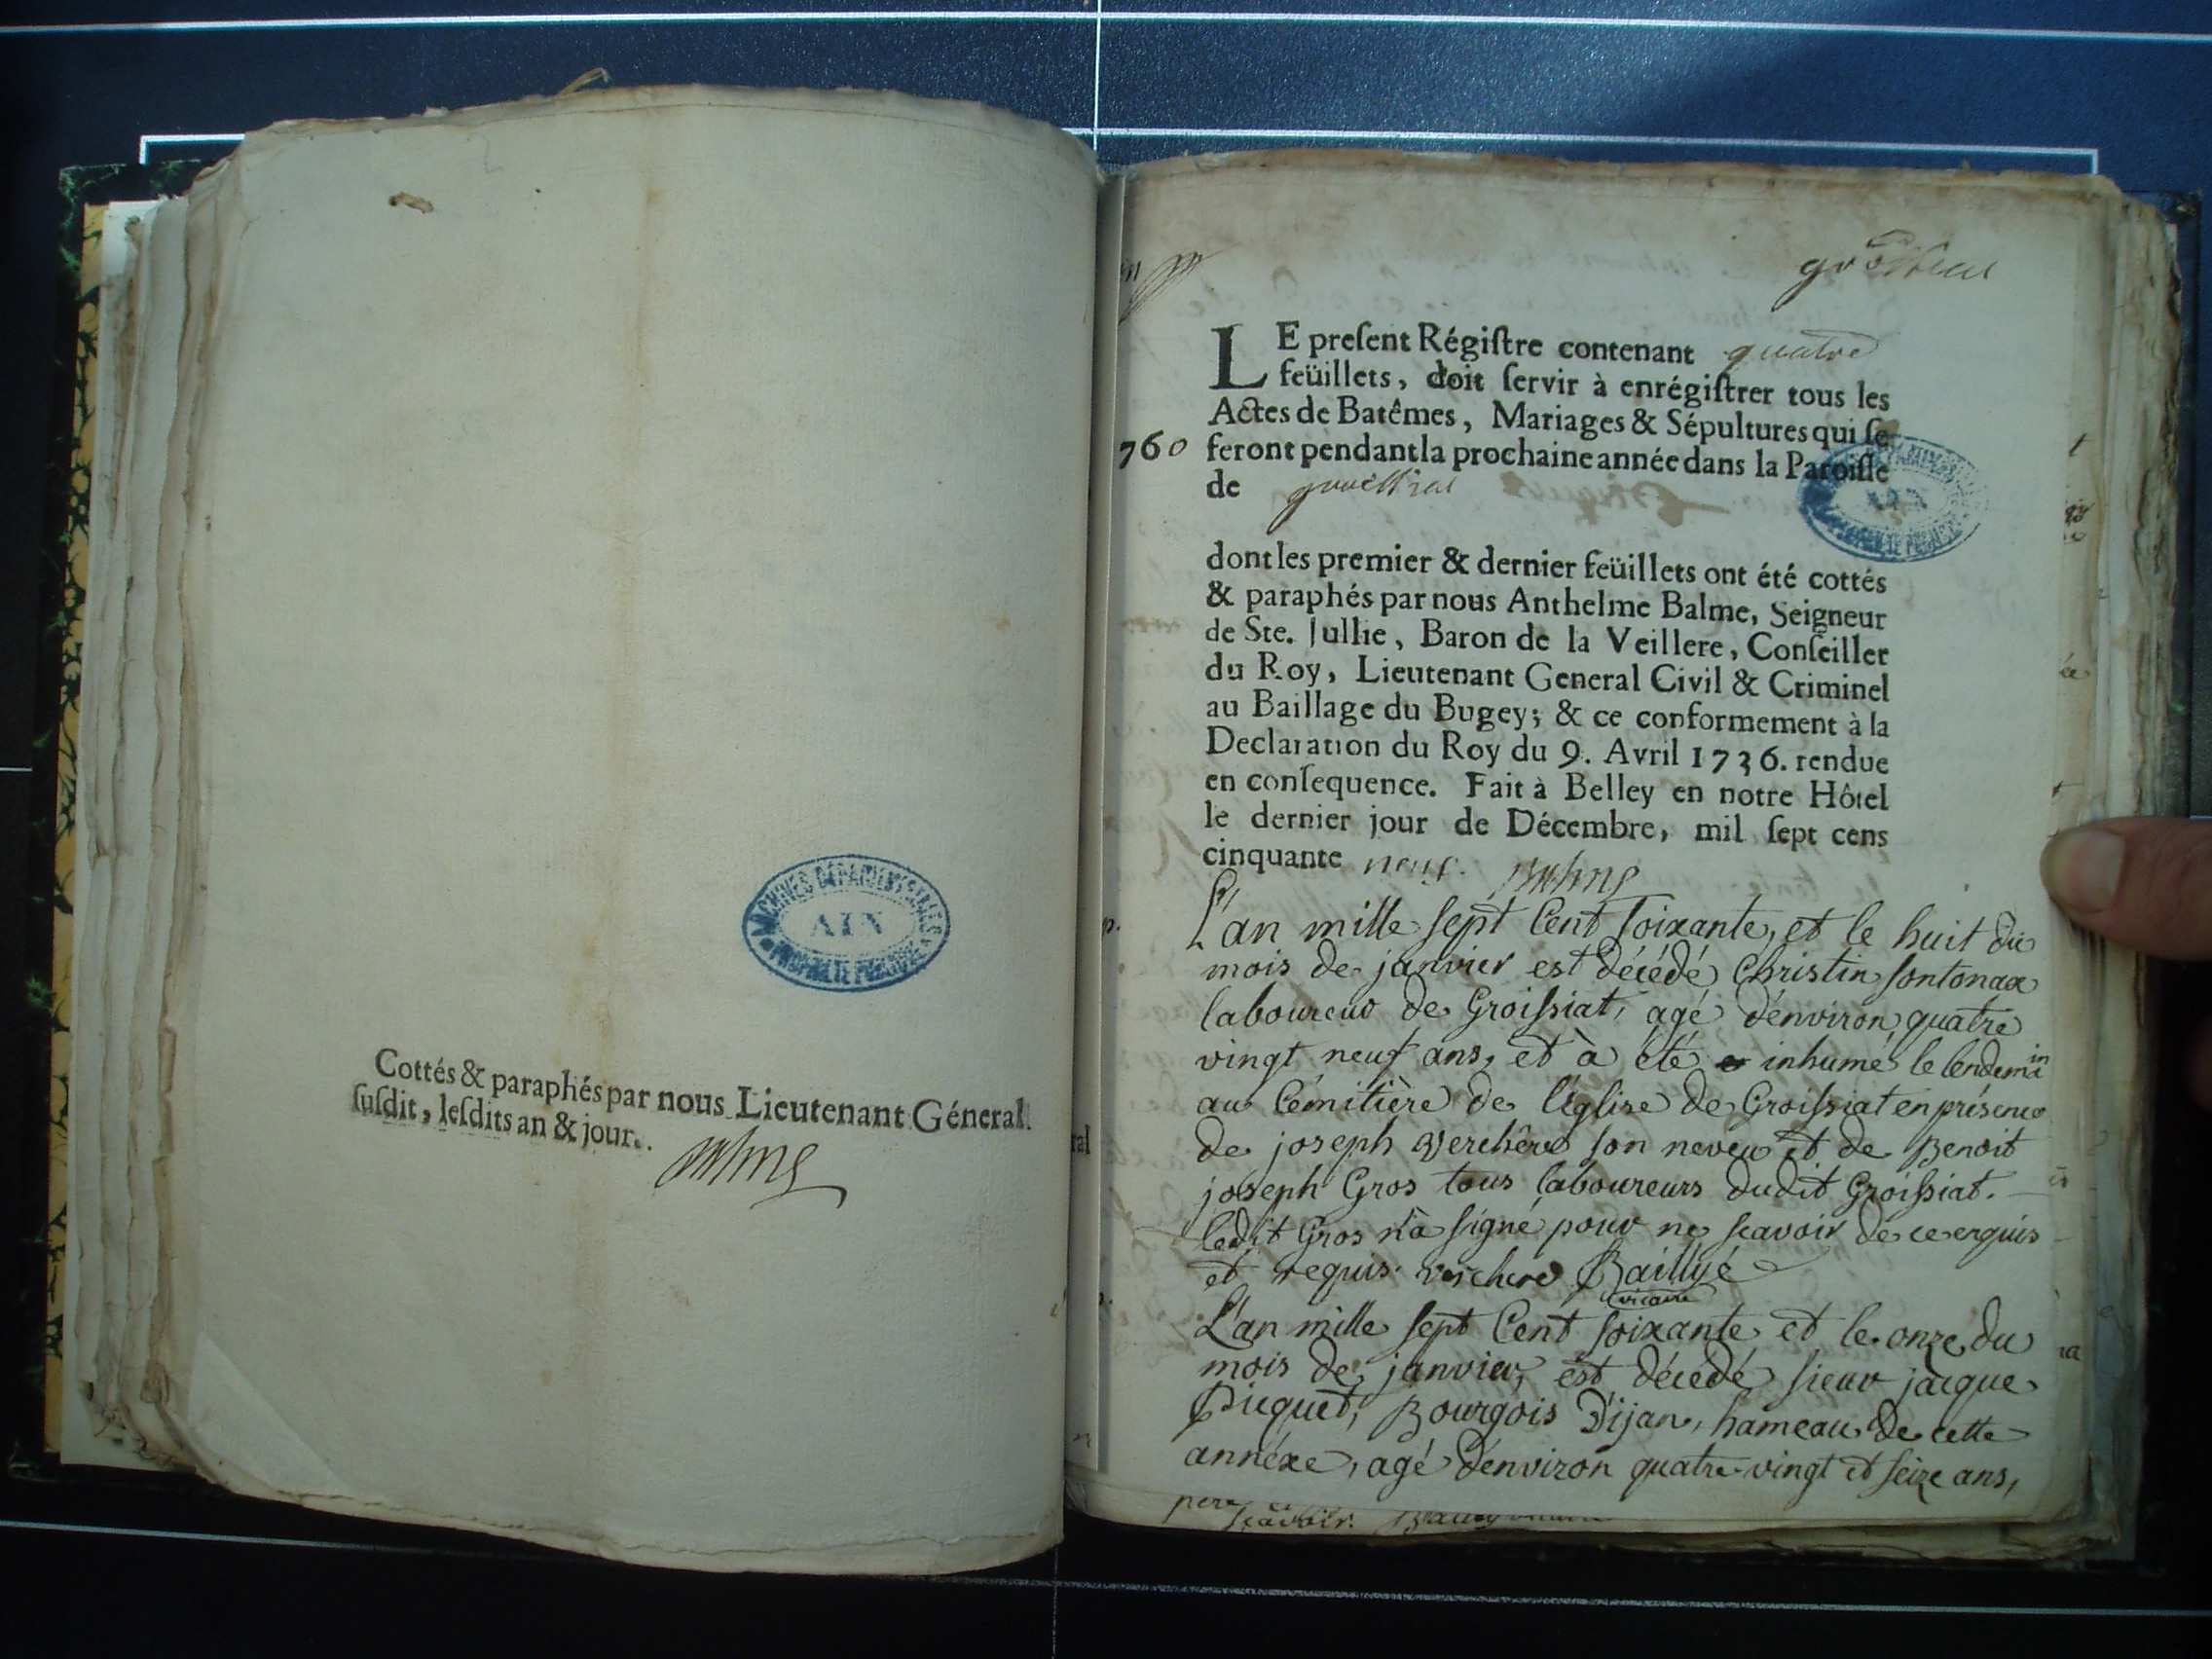 Cottés & paraphés par nous Lieutenant Géneral
ſuſdit, leſdits an & jour.
ARCHIVES DÉPARTEMENTALES
AIN
PROPRIÉTÉ PUBLIQUE
LE preſent Régiſtre contenant quatre
feüillets, doit ſervir à enrégiſtrer tous les
Actes de Batêmes, Mariages & Sépultures qui ſe
760 feront pendant la prochaine année dans la Paroiſſe
de
dont les premier & dernier feüillets ont été cottés
& paraphés par nous Anthelme Balme, Seigneur
de Ste. Jullie, Baron de la Veillere, Conſeiller
du Roy, Lieutenant General Civil & Criminel
au Baillage du Bugey; & ce conformement à la
Declaration du Roy du 9. Avril 1736. rendue
en conſequence. Fait à Belley en notre Hôtel
le dernier jour de Décembre, mil ſept cens
cinquante neuf.
L'an mille sept Cent Soixante, et le huit du
mois de janvier est décédé Christin sontonax
laboureur de Groissiat, agé d'environ quatre
vingt neuf ans, et à été inhumé le lendemain
au Cémitière de l'église de Groissiat en présence
de joseph Verchère son neveu et de Benoit
joseph Gros tous laboureurs dudit Groissiat.
ledit Gros n'à signé pour ne scavoir de ce enquis
et requis. verchere Baillyé
vicaire
L'an mille sept Cent soixante et le onze du
mois de janvier, est décédé sieur jacque
Picquet, Bourgois D'ijan, hameau de cette
annéxe, agé d'environ quatre vingt et seize ans,